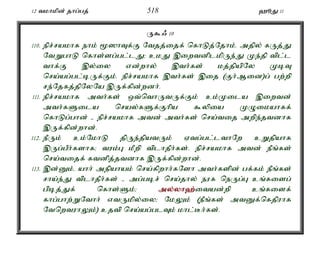 12 வமாமின் தாப்பத் 518 ஹூது 11
ருகூஃ 10
110. நிச்சயமாக நாம் மூஸாவுக்கு வேதத்தைக் கொடுத்தோம். அதில் கருத்து
வேறுபாடு கொள்ளப்பட்டது; உமது இறைவனிடமிருந்து முந்தி விட்ட
வாக்கு இல்லை என்றால் இவர்கள் மத்தியிலே முடிவு
செய்யப்பட்டிருக்கும். நிச்சயமாக இவர்கள் இதை (குர்ஆனை)ப் பற்றி
சந்தேகத்திலேயே இருக்கின்றனர்.
111. நிச்சயமாக அவர்கள் ஒவ்வொருவருக்கும் உம்முடைய இறைவன்
அவர்களுடைய செயல்களுக்குரிய கூலியை முழுமையாகக்
கொடுப்பான் - நிச்சயமாக அவன் அவர்கள் செய்வதை அறிந்தவனாக
இருக்கின்றான்.
112. நீரும் உம்மோடு திருந்தியவரும் ஏவப்பட்டவாறே உறுதியாக
இருப்பீர்களாக; வரம்பு மீறி விடாதீர்கள். நிச்சயமாக அவன் நீங்கள்
செய்வதைக் கவனித்தவனாக இருக்கின்றான்.
113. இன்னும், யார் அநியாயம் செய்கிறார்களோ அவர்களின் பக்கம் நீங்கள்
சாய்ந்து விடாதீர்கள் - அப்படிச் செய்தால் நரக நெருப்பு உங்களைப்
பிடித்துக் கொள்ளும்; அல்லாஹ்வையன்றி உங்களைக்
காப்பாற்றுவோர் எவருமில்லை; மேலும் (நீங்கள் அவனுக்கெதிராக
வேறெவராலும்) உதவி செய்யப்படவும் மாட்டீர்கள்.